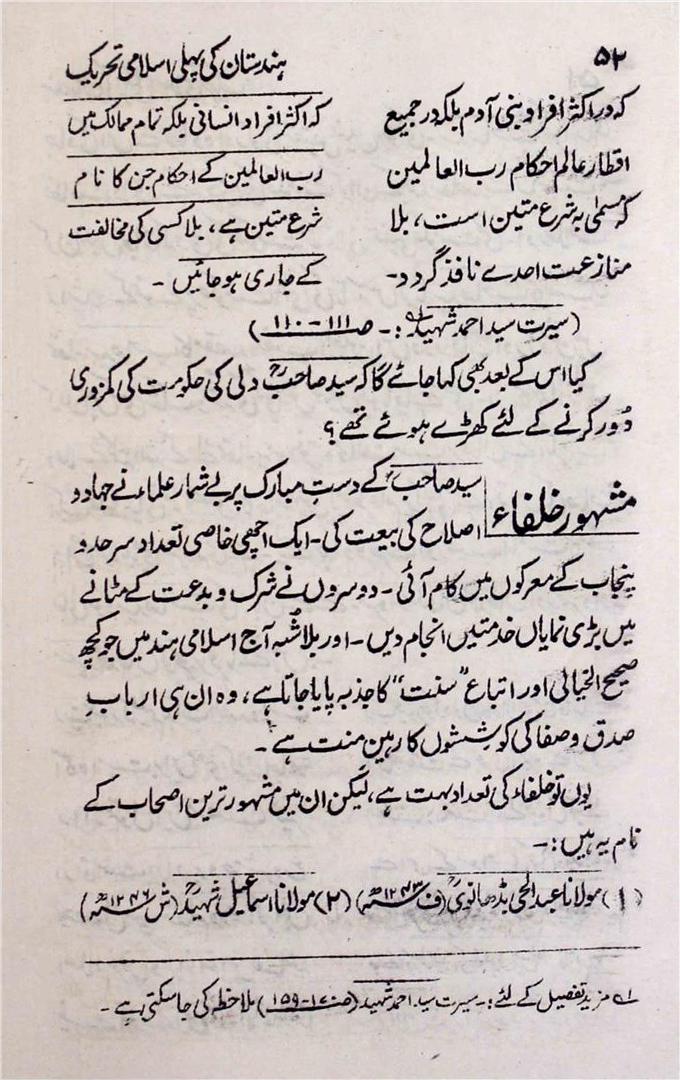 ۵۲
ہندستان کی پہلی اسلامی تحریک
کہ در اکثر افراد بنی آدم بلکہ در جمیع
اقطار عالم احکام رب العالمین
کہ مسمیٰ بہ شرع متین است، بلا
منازعت احدے نافذ گردد۔
کہ اکثر افراد انسانی بلکہ تمام ممالک میں
رب العالمین کے احکام جن کا نام
شرع متین ہے، بلا کسی کی مخالفت
کے جاری ہو جائیں ۔
(سیرت سید احمد شہیدؒ :۔ صـ ۱۱۱-۱۱۰)
کیا اس کے بعد بھی کہا جائے گا کہ سید صاحبؒ دلی کی حکومت کی کمزوری
دُور کرنے کے لئے کھڑے ہوئے تھے؟
مشہور خلفاء
سید صاحبؒ کے دستِ مبارک پر بے شمار علماء نے جہاد و
اصلاح کی بیعت کی۔ ایک اچھی خاصی تعداد سرحد و
پنجاب کے معرکوں میں کام آئی ۔ دوسروں نے شرک و بدعت کے مٹانے
میں بڑی نمایاں خدمتیں انجام دیں۔ اور بلاشُبہ آج اسلامی ہند میں جو کچھ
صحیح الخیالی اور اتباع "سنت" کا جذبہ پایا جاتا ہے، وہ ان ہی اربابِ
صدق و صفا کی کوششوں کا رہینِ منت ہے ۔
یوں تو خلفاء کی تعداد بہت ہے، لیکن ان میں مشہور ترین اصحاب کے
نام یہ ہیں :۔
(۱) مولانا عبدالحی بڈھانویؒ (ف ۱۲۴۳ھ) (۲) مولانا اسماعیل شہیدؒ (ش ۱۲۴۶ھ)
۱ مزید تفصیل کے لئے :۔ سیرت سید احمد شہید (صـ ۱۷۰-۱۵۹) ملاحظہ کی جاسکتی ہے ۔